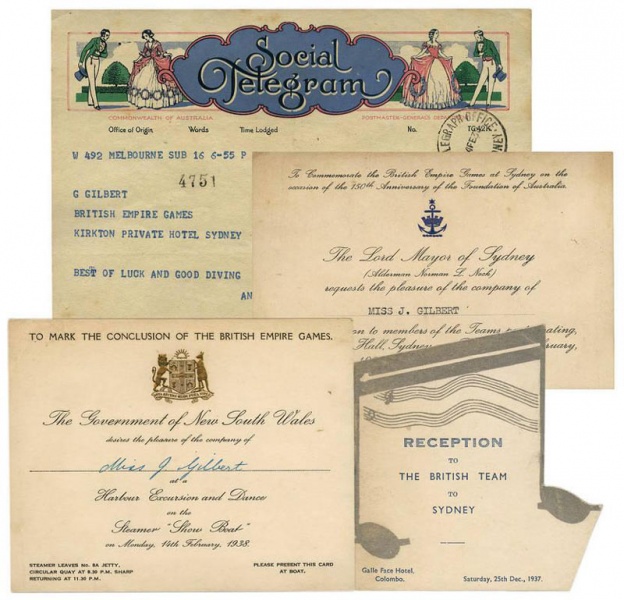 Social
Telegram
COMMONWEALTH OF AUSTRALIA
POSTMASTER-GENERAL'S
Office of Origin Words Time Lodged No. TG42K
W 492 MELBOURNE SUB 16 6-55 P
4751
G GILBERT
BRITISH EMPIRE GAMES
KIRKTON PRIVATE HOTEL SYDNEY
BEST OF LUCK AND GOOD DIVING
AN
To Commemorate the British Empire Games at Sydney on the
occasion of the 150th Anniversary of the Foundation of Australia.
The Lord Mayor of Sydney
(Alderman Norman L. Nock)
requests the pleasure of the company of
MISS J. GILBERT
to members of the Teams
Hall, Sydney
TO MARK THE CONCLUSION OF THE BRITISH EMPIRE GAMES.
The Government of New South Wales
desires the pleasure of the company of
Miss J Gilbert
at a
Harbour Excursion and Dance
on the
Steamer "Show Boat"
on Monday, 14th February, 1938.
STEAMER LEAVES No. 6A JETTY,
CIRCULAR QUAY AT 8.30 P.M. SHARP
RETURNING AT 11.30 P.M.
PLEASE PRESENT THIS CARD
AT BOAT.
RECEPTION
TO
THE BRITISH TEAM
TO
SYDNEY
Galle Face Hotel,
Colombo.
Saturday, 25th Dec., 1937.